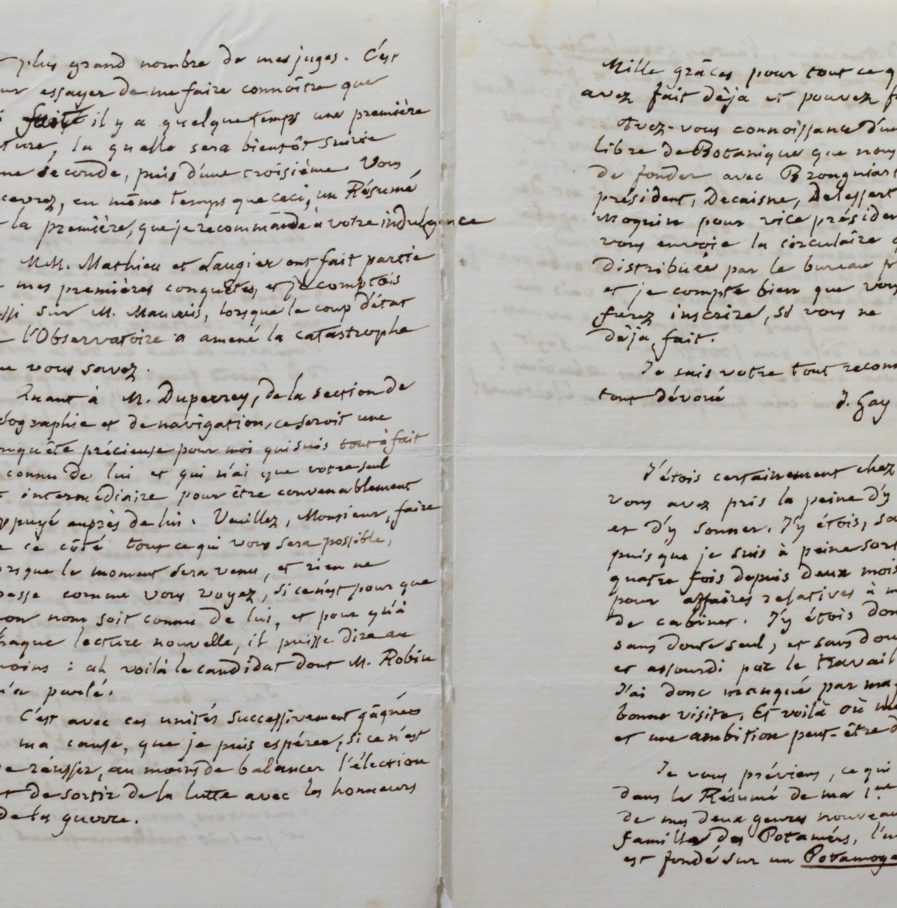 plus grand nombre de mes juges. C'est
ur essayer de me faire connoître que
fait il y a quelque temps une première
ture, la quelle sera bientôt suivie
ne seconde, puis d'une troisième. Vous
cevrez, en même temps que ceci, un Résumé
la première, que je recommande à votre indulgence
MM. Mathieu et Laugier ont fait partie
mes premières conquêtes, et je comptois
ssi sur M. Mauvais, lorsque le coup d'état
l'Observatoire a amené la catastrophe
ue vous savez.
Quant à M. Duperrey, de la section de
éographie et de navigation, ce seroit une
nquête précieuse pour moi qui suis tout à fait
connu de lui et qui n'ai que votre seul
t intermédiaire pour être convenablement
ppuyé auprès de lui. Veuillez, Monsieur, faire
e ce côté tout ce qui vous sera possible,
orsque le moment sera venu, et rien ne
passe comme vous voyez, si ce n'est pour que
on nom soit connu de lui, et pour qu'à
haque lecture nouvelle, il puisse dire au
moins : ah voilà le candidat dont M. Robin
m'a parlé.
C'est avec ces unités successivement gâgnés
ma cause, que je puis espérer, si ce n'est
de réussir, au moins de balancer l'élection
t de sortir de la lutte avec les honneurs
de la guerre.
Mille grâces pour tout ce q
avez fait déja et pouvez f
Avez-vous connoissance d'u
libre de Botanique que nous
de fonder avec Brongniar
président, Decaisne, Delessert
Moquin pour vice présiden
vous envoie la circulaire
distribuée par le bureau
et je compte bien que vous
ferez inscrire, si vous ne
déja fait.
Je suis votre tout recon
tout dévoué J. Gay
J'étois certainement chez
vous avez pris la peine d'y
et d'y sonner. J'y étois, sa
puis que je suis à peine sort
quatre fois depuis deux mois
pour affaires relatives à m
de cabinet. J'y étois don
sans doute seul, et sans dou
et assourdi par le travail
J'ai donc manqué par ma
bonne visite. Et voilà où m
et une ambition peut-être d
Je vous préviens, ce qui
dans le Résumé de ma 1.re
de mes deux genres nouveau
famille des Potamées, l'u
est fondé sur un Potamoge